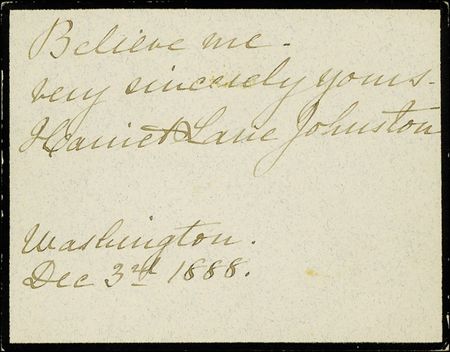 Believe me.
very sincerely yours.
Harriet Lane Johnston
Washington.
Dec 3rd 1888.